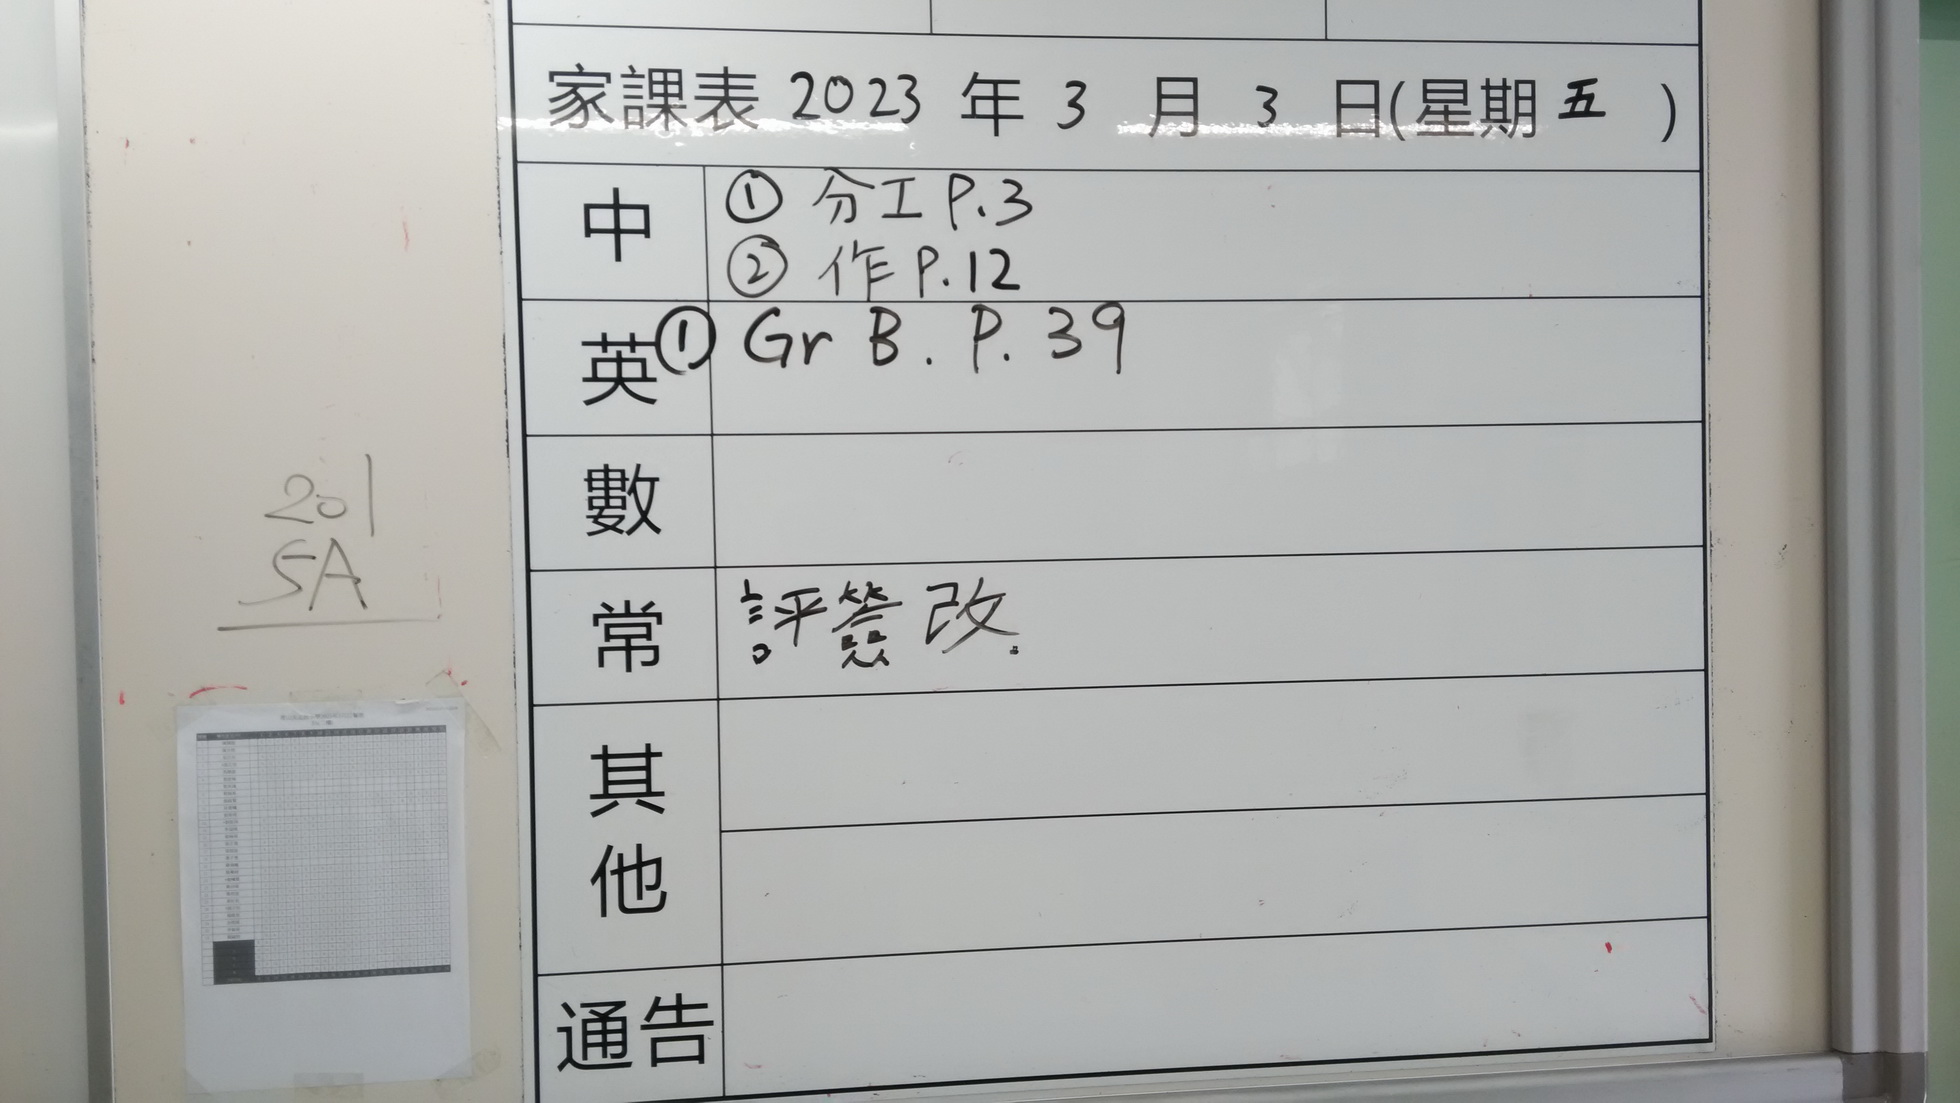 家課表 2023 年 3 月 3 日(星期五)
中
① 分工 P.3
② 作 P.12
英
① Gr B. P. 39
數
常
評簽改.
其他
通告
201
5A